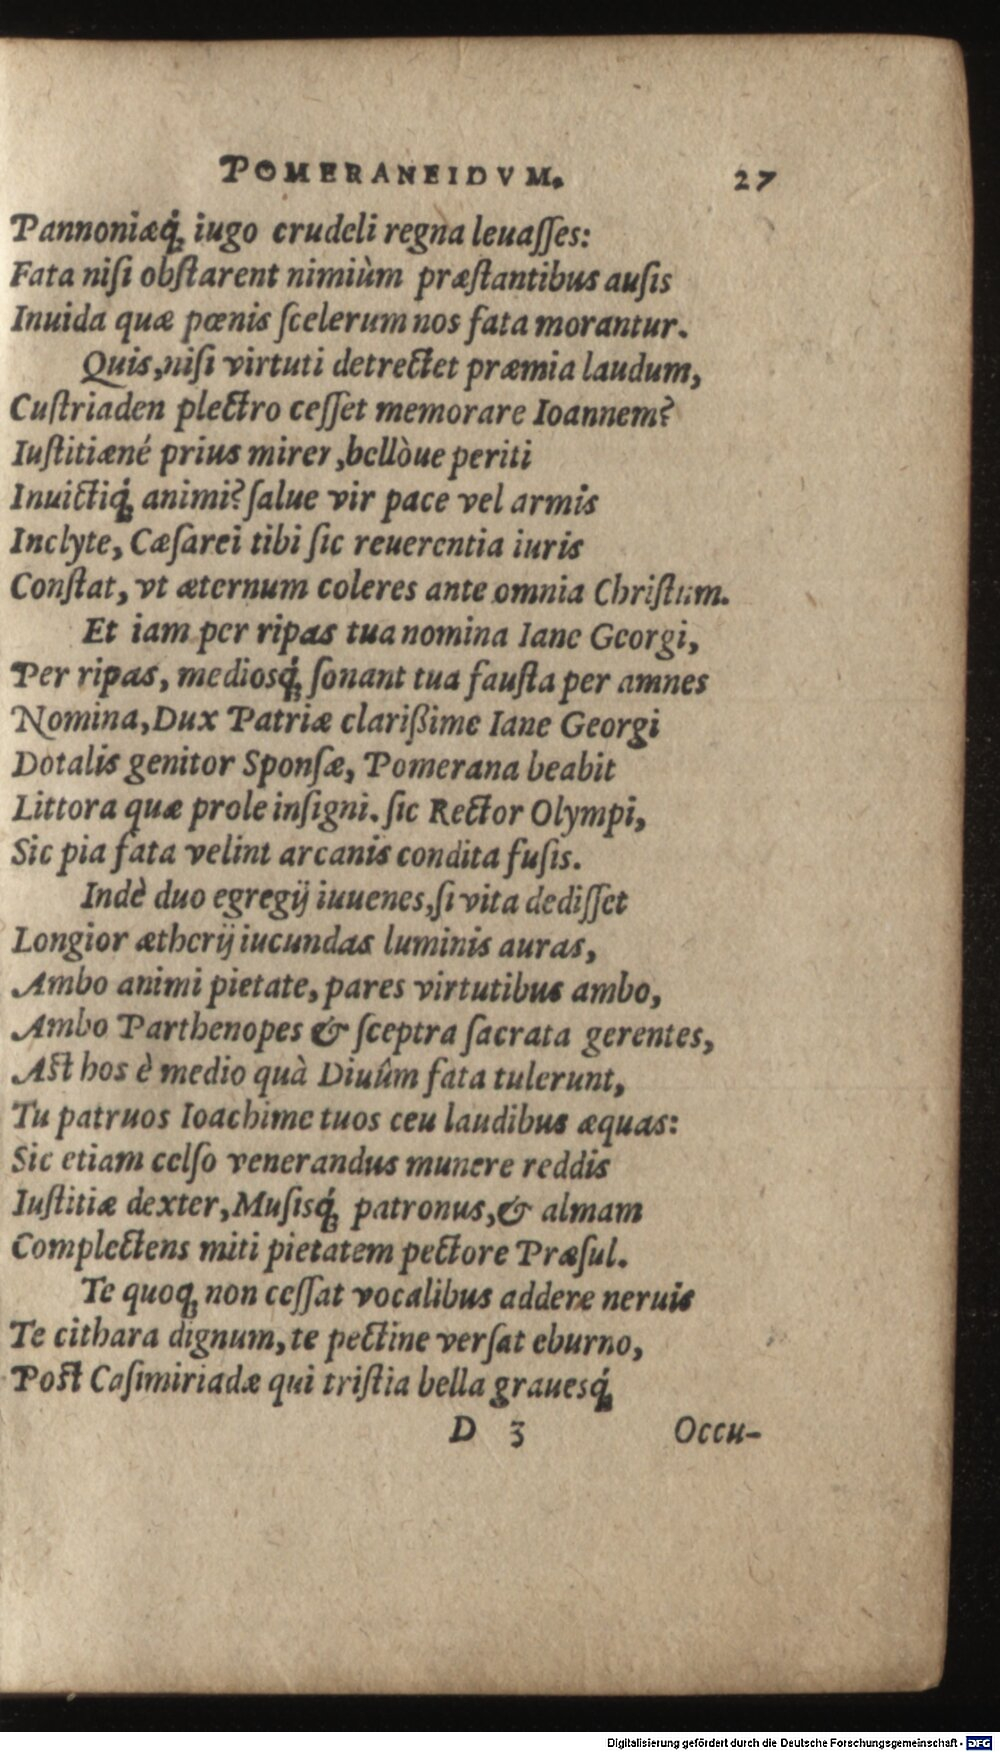 POMERANEIDVM. 27
Pannoniæq́; iugo crudeli regna leuaſſes:
Fata niſi obſtarent nimiùm præſtantibus auſis
Inuida quæ pœnis ſcelerum nos fata morantur.
Quis, niſi virtuti detrectet præmia laudum,
Cuſtriaden plectro ceſſet memorare Ioannem?
Iuſtitiæné prius mirer, bellòue periti
Inuictiq́; animi? ſalue vir pace vel armis
Inclyte, Cæſarei tibi ſic reuerentia iuris
Conſtat, vt æternum coleres ante omnia Chriſtum.
Et iam per ripas tua nomina Iane Georgi,
Per ripas, mediosq́; ſonant tua fauſta per amnes
Nomina, Dux Patriæ clarißime Iane Georgi
Dotalis genitor Sponſæ, Pomerana beabit
Littora quæ prole inſigni. ſic Rector Olympi,
Sic pia fata velint arcanis condita fuſis.
Indè duo egregij iuuenes, ſi vita dediſſet
Longior ætherij iucundas luminis auras,
Ambo animi pietate, pares virtutibus ambo,
Ambo Parthenopes & ſceptra ſacrata gerentes,
Aſt hos è medio quà Diuûm fata tulerunt,
Tu patruos Ioachime tuos ceu laudibus æquas:
Sic etiam celſo venerandus munere reddis
Iuſtitiæ dexter, Muſisq́; patronus, & almam
Complectens miti pietatem pectore Præſul.
Te quoq; non ceſſat vocalibus addere neruis
Te cithara dignum, te pectine verſat eburno,
Poſt Caſimiriadæ qui triſtia bella grauesq́;
D 3 Occu-
Digitalisierung gefördert durch die Deutsche Forschungsgemeinschaft - DFG